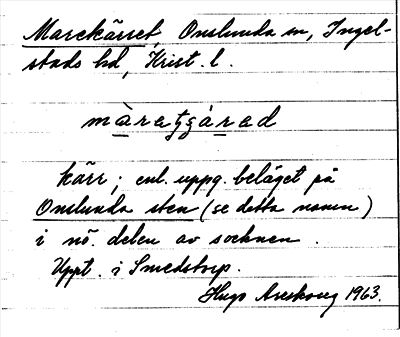 Marekärret, Onslunda sn, Ingel-
stads hd, Krist. l.
kärr; enl. uppg. beläget på
Onslunda sten (se detta namn)
i nö. delen av socknen.
Uppt. i Smedstorp.
Hugo Areskoug 1963.